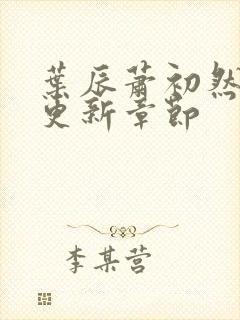 葉辰蕭初然
更新章節
李某营